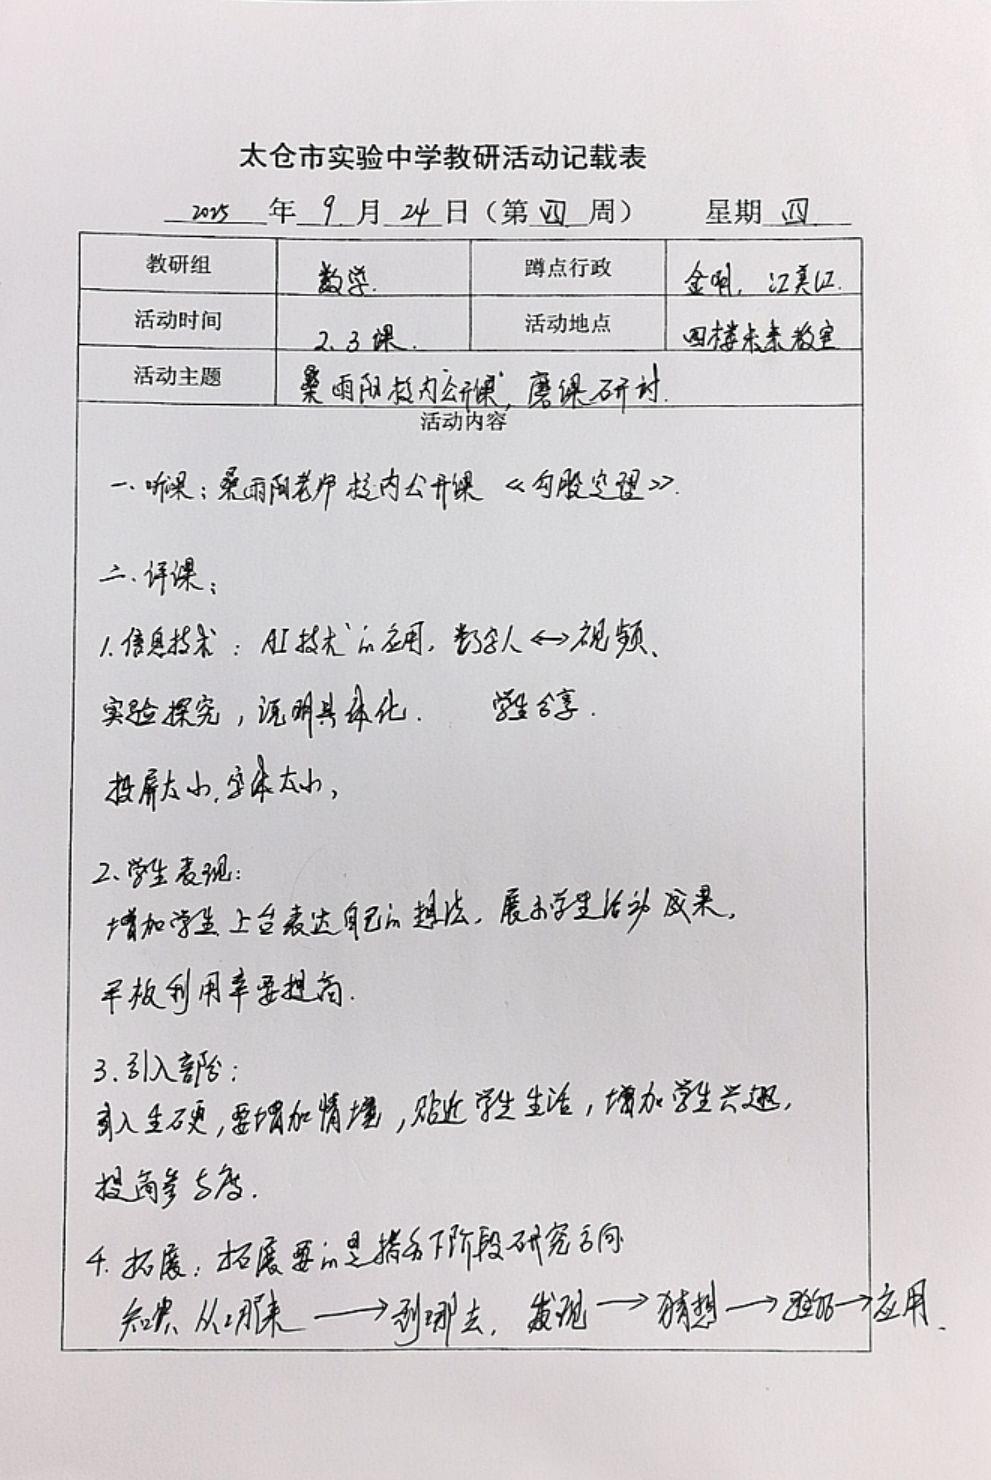 太仓市实验中学教研活动记载表
2025 年 9 月 24 日（第 四 周） 星期 四
教研组 数学. 蹲点行政 金明, 江美江.
活动时间 2.3课. 活动地点 四楼未来教室
活动主题 桑雨阳校内"公开课", 磨课研讨.
活动内容
一. 听课: 桑雨阳老师校内公开课 《勾股定理》.
二. 评课:
1. 信息技术: AI技术的应用, 数字人↔视频、
实验探究, 证明具体化. 学生分享.
投屏大小, 字体大小,
2. 学生表现:
增加学生上台表达自己的想法, 展示学生活动成果,
平板利用率要提高.
3. 引入部分:
引入生硬, 要增加情境, 贴近学生生活, 增加学生兴趣,
提高参与度.
4. 拓展: 拓展要的是指明下阶段研究方向
知识从哪来 → 到哪去, 发现 → 猜想 → 验证 → 应用.